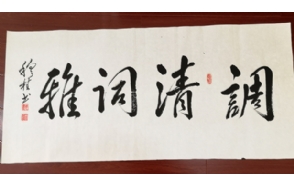 調清词雅